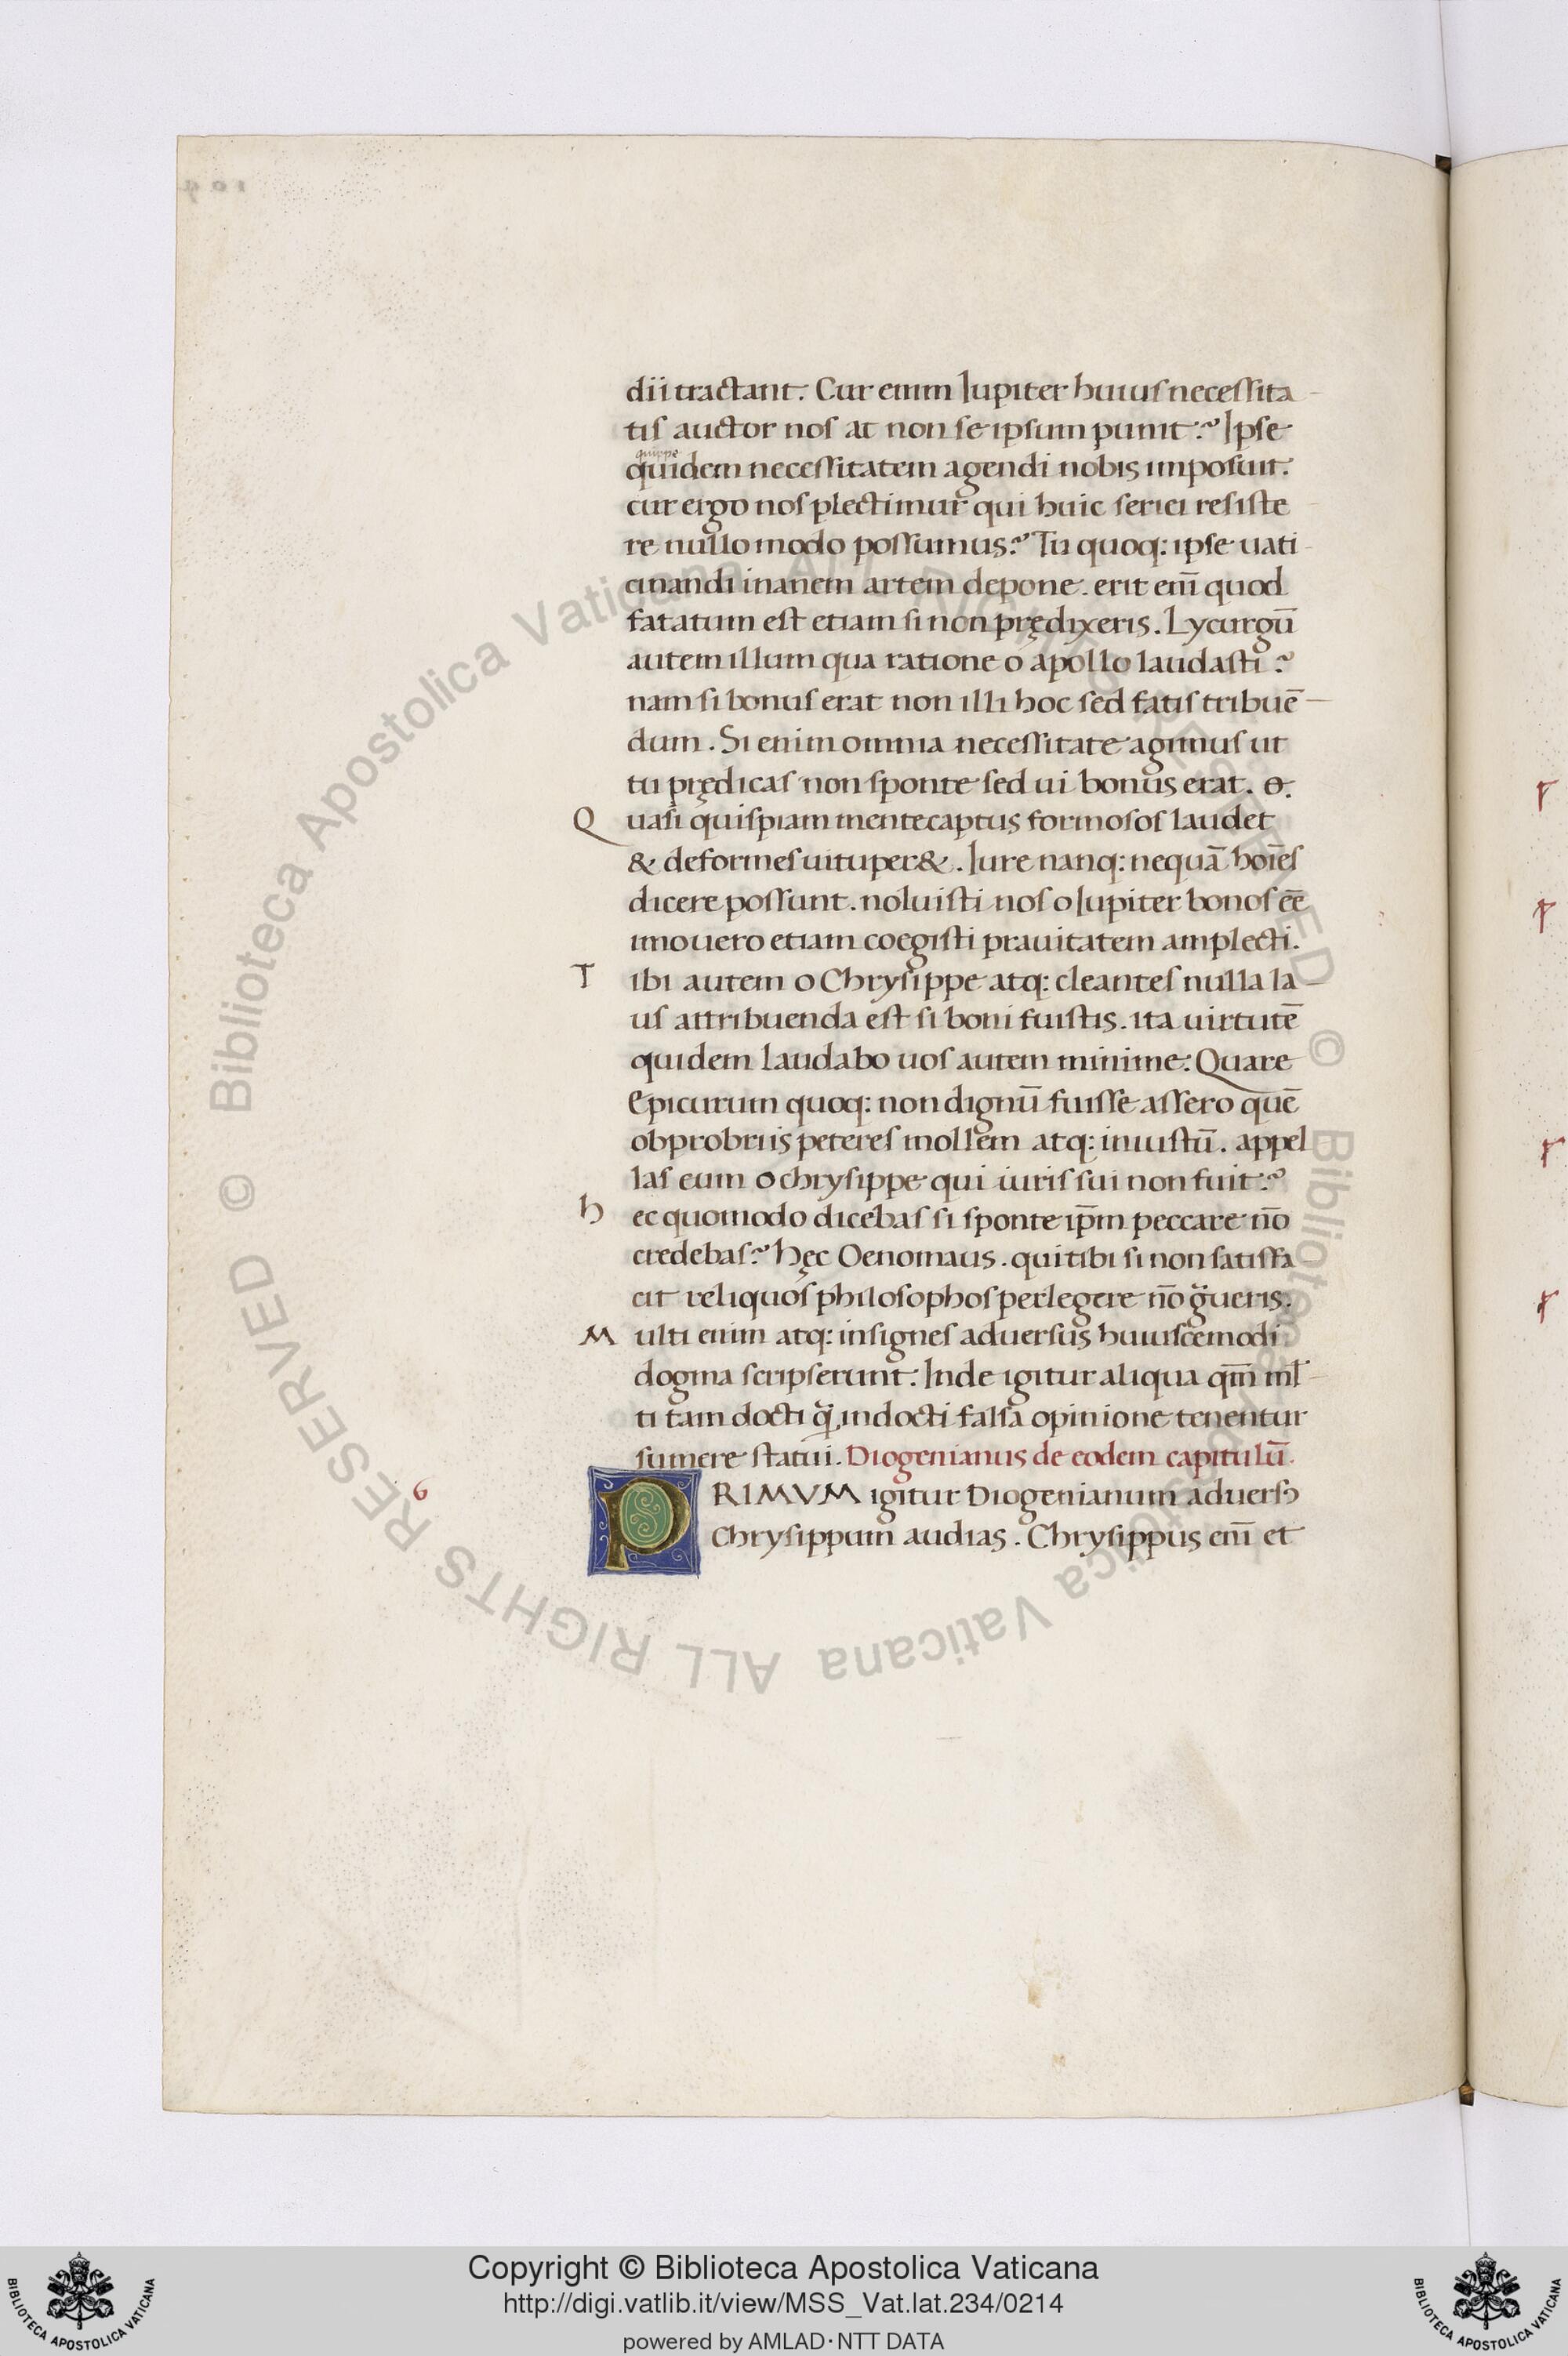 dii tractant. Cur enim Iupiter huius necessita
tis auctor nos at non se ipsum punit? Ipse
quippe
quidem necessitatem agendi nobis imposuit.
cur ergo nos plectimur qui huic seriei resiste
re nullo modo possumus? Tu quoq: ipse uati
cinandi inanem artem depone. erit eni̅ quod
fatatum est etiam si non prędixeris. Lycurgu̅
autem illum qua ratione o apollo laudasti?
nam si bonus erat non illi hoc sed fatis tribue̅
dum. Si enim omnia necessitate agimus ut
tu prędicas non sponte sed ui bonus erat.
Quasi quispiam mentecaptus formosos laudet
& deformes uituper&. Iure nanq: nequa̅ ho̅ies
dicere possunt. noluisti nos o Iupiter bonos e̅e
imo uero etiam coegisti prauitatem amplecti.
Tibi autem o Chrysippe atq: cleantes nulla la
us attribuenda est si boni fuistis. ita uirtute̅
quidem laudabo uos autem minime: Quare
Epicurum quoq: non dignu̅ fuisse assero que̅
obprobriis peteres mollem atq: iniustu̅. appel
las eum o chrysippe qui iuris sui non fuit?
hec quomodo dicebas si sponte ip̅m peccare no̅
credebas? hęc Oenomaus. qui tibi si non satisfa
cit reliquos philosophos perlegere no̅ g̈ueris.
Multi enim atq: insignes aduersus huiuscemodi
dogma scripserunt. Inde igitur aliqua qm̅ ml̅
ti tam docti q̃ indocti falsa opinione tenentur
sumere statui. Diogenianus de eodem capitulu̅.
6
PRIMVM igitur Diogenianum aduersꝰ
Chrysippum audias. Chrysippus eni̅ et
© Biblioteca Apostolica Vaticana ALL RIGHTS RESERVED
© Biblioteca Apostolica Vaticana ALL RIGHTS RESERVED
Copyright © Biblioteca Apostolica Vaticana
http://digi.vatlib.it/view/MSS_Vat.lat.234/0214
powered by AMLAD·NTT DATA
BIBLIOTECA APOSTOLICA VATICANA
BIBLIOTECA APOSTOLICA VATICANA